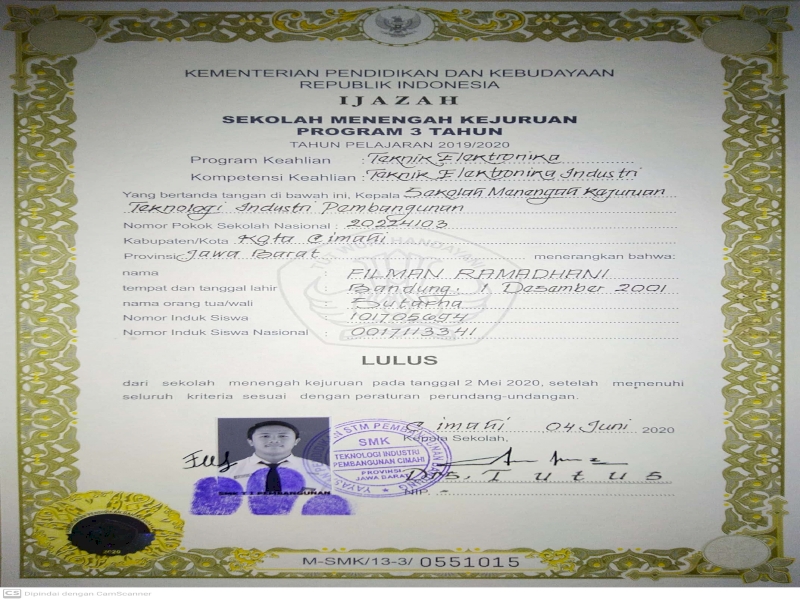 KEMENTERIAN PENDIDIKAN DAN KEBUDAYAAN
REPUBLIK INDONESIA
IJAZAH
SEKOLAH MENENGAH KEJURUAN
PROGRAM 3 TAHUN
TAHUN PELAJARAN 2019/2020
Program Keahlian : Teknik Elektronika
Kompetensi Keahlian : Teknik Elektronika Industri
Yang bertanda tangan di bawah ini, Kepala Sekolah Menengah Kejuruan
Teknologi Industri Pembangunan
Nomor Pokok Sekolah Nasional : 20224103
Kabupaten/Kota Kota Cimahi
Provinsi Jawa Barat menerangkan bahwa:
nama : FILMAN RAMADHANI
tempat dan tanggal lahir : Bandung, 1 Desember 2001
nama orang tua/wali : Sutarha
Nomor Induk Siswa : 101705694
Nomor Induk Siswa Nasional : 0017113341
TUT WURI HANDAYANI
LULUS
dari sekolah menengah kejuruan pada tanggal 2 Mei 2020, setelah memenuhi
seluruh kriteria sesuai dengan peraturan perundang-undangan.
Cimahi 04 Juni 2020
Kepala Sekolah,
STM PEMBANGUNAN
SMK
TEKNOLOGI INDUSTRI
PEMBANGUNAN CIMAHI
PROVINSI
JAWA BARAT
Drs. Tutus
NIP. -
SMK T I PEMBANGUNAN
M-SMK/13-3/ 0551015
CS Dipindai dengan CamScanner